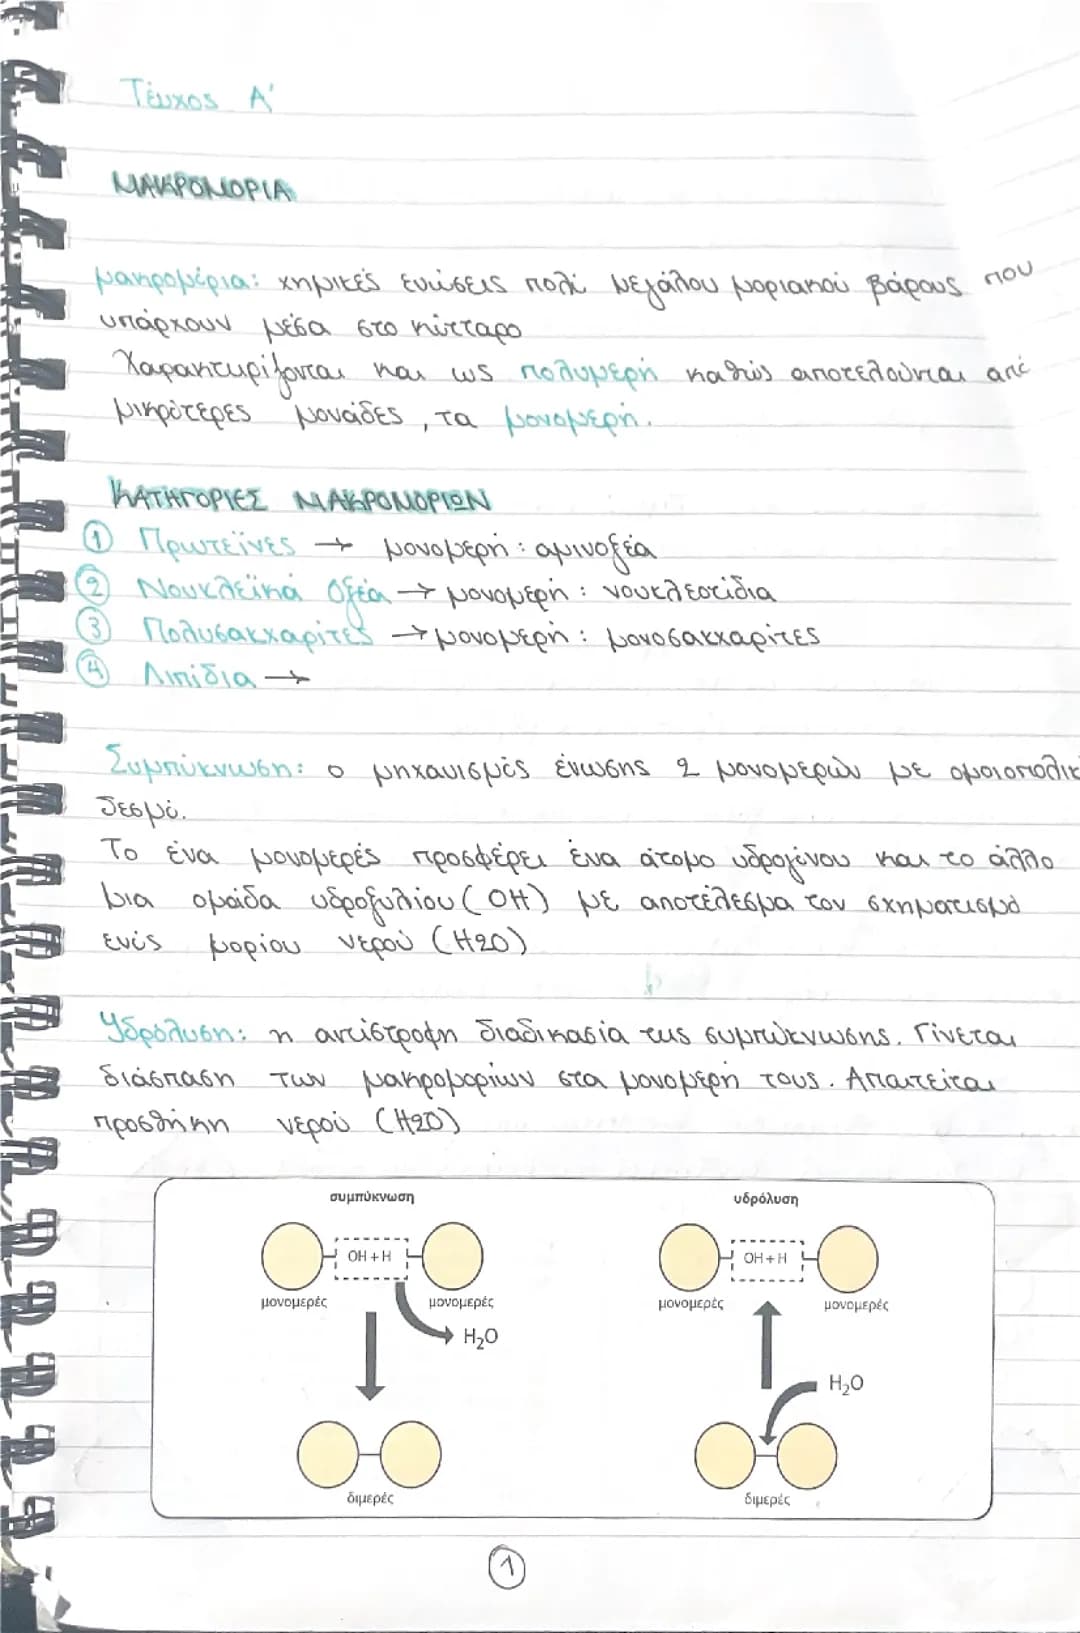 Τεύχος Α'
ΜΑΚΡΟΜΟΡΙΑ
μακρομόρια: χημικές ενώσεις πολύ μεγάλου μοριακού βάρους που
υπάρχουν μέσα στο κύτταρο
Χαρακτηρίζονται και ως πολυμερή καθώς αποτελούνται από
μικρότερες μονάδες, τα μονομερή.
ΚΑΤΗΓΟΡΙΕΣ ΜΑΚΡΟΜΟΡΙΩΝ
1 Πρωτεϊνες → μονομερή: αμινοξέα
2 Νουκλεϊκά Οξέα → μονομερή: νουκλεοτίδια
3 Πολυσακχαρίτες → μονομερή: μονοσακχαρίτες
4 Λιπίδια →
Συμπύκνωση: ο μηχανισμός ένωσης 2 μονομερών με ομοιοπολικ
δεσμό.
Το ένα μονομερές προσφέρει ένα άτομο υδρογόνου και το άλλο
μια ομάδα υδροξυλίου (ΟΗ) με αποτέλεσμα τον σχηματισμό
ενός μορίου νερού (H2O)
Υδρόλυση: η αντίστροφη διαδικασία της συμπύκνωσης. Γίνεται
διάσπαση των μακρομορίων στα μονομερή τους. Απαιτείται
προσθήκη νερού (H2O)
συμπύκνωση υδρόλυση
OH + H OH + H
μονομερές μονομερές μονομερές μονομερές
H₂O
H₂O
διμερές διμερές
1